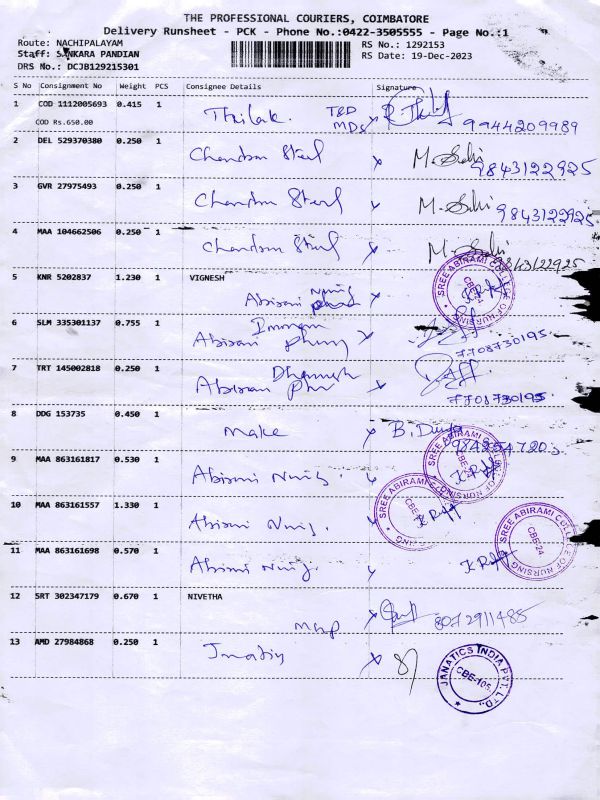 THE PROFESSIONAL COURIERS, COIMBATORE
Delivery Runsheet - PCK - Phone No.:0422-3505555 - Page No.:1
Route: NACHIPALAYAM RS No.: 1292153
Staff: SANKARA PANDIAN RS Date: 19-Dec-2023
DRS No.: DCJB129215301
S No Consignment No Weight PCS Consignee Details Signature
1 COD 1112005693 0.415 1 Thilak. T&D
COD Rs.650.00 MDs 9944209989
2 DEL 529370380 0.250 1 Chandra Steel x 9843122925
3 GVR 27975493 0.250 1 Chandra Steel x 9843122925
4 MAA 104662506 0.250 1 Chandra Steel x 9843122925
SREE ABIRAMI COLLEGE OF NURSING
5 KNR 5202837 1.230 1 VIGNESH
Abirami x
6 SLM 335301137 0.755 1
Abirami x 7708730195
7 TRT 145002818 0.250 1 Dhanush
Abirami x 7708730195
8 DDG 153735 0.450 1 make x B.
SREE ABIRAMI COLLEGE OF NURSING
9 MAA 863161817 0.530 1 Abirami Nurs. x
SREE ABIRAMI
10 MAA 863161557 1.330 1 Abirami Nurs. x
SREE ABIRAMI COLLEGE OF NURSING CBE-24
11 MAA 863161698 0.570 1 Abirami Nurs. x
12 SRT 302347179 0.670 1 NIVETHA
x 8072911488
13 AMD 27984868 0.250 1 x
JANATICS INDIA PVT. LTD., CBE-105.